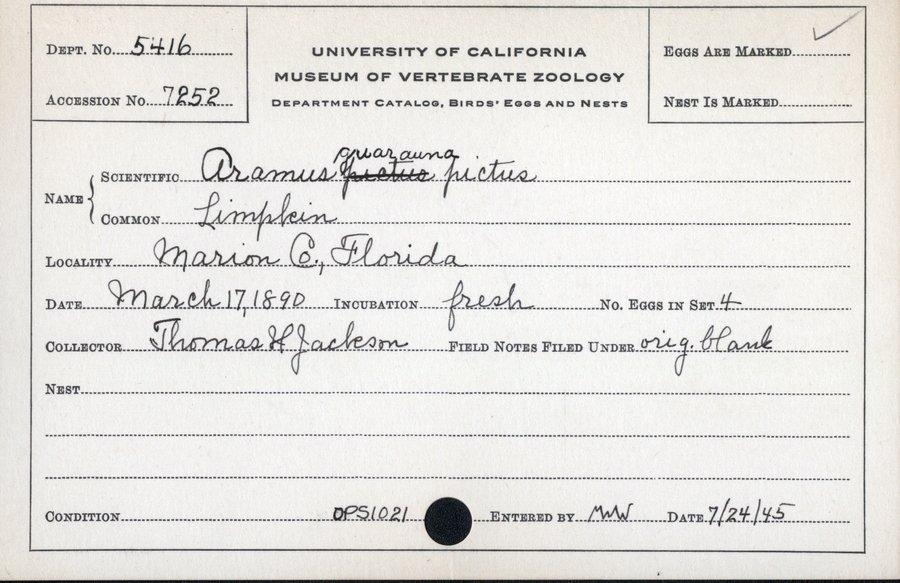 DEPT. NO. 5416
ACCESSION NO. 7252
UNIVERSITY OF CALIFORNIA
MUSEUM OF VERTEBRATE ZOOLOGY
DEPARTMENT CATALOG, BIRDS' EGGS AND NESTS
EGGS ARE MARKED ✓
NEST IS MARKED
guarauna
NAME { SCIENTIFIC Aramus pictus pictus
COMMON Limpkin
LOCALITY Marion Co., Florida
DATE March 17, 1890 INCUBATION fresh NO. EGGS IN SET 4
COLLECTOR Thomas H Jackson FIELD NOTES FILED UNDER orig. blank
NEST
CONDITION OPS1021 ENTERED BY MWW DATE 7/24/45